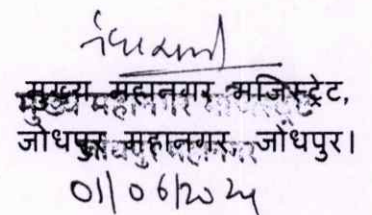 मुख्य महानगर मजिस्ट्रेट,
जोधपुर महानगर, जोधपुर।
01/06/2024